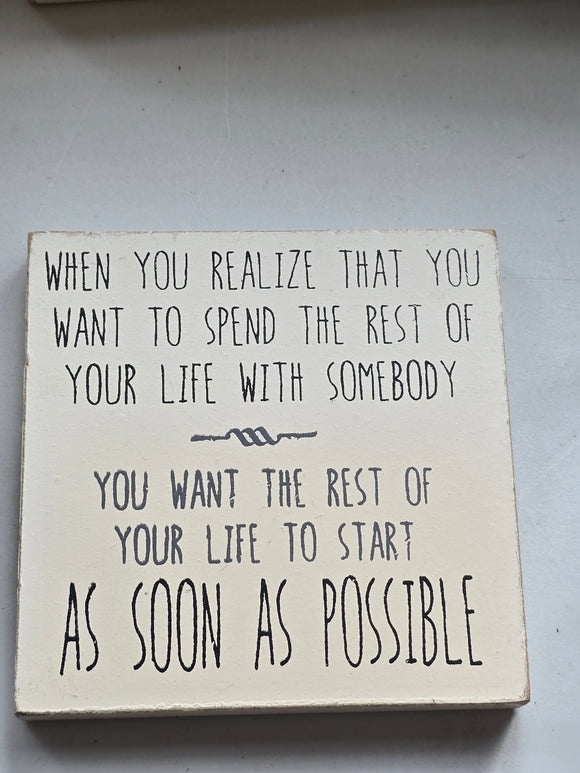 WHEN YOU REALIZE THAT YOU
WANT TO SPEND THE REST OF
YOUR LIFE WITH SOMEBODY
YOU WANT THE REST OF
YOUR LIFE TO START
AS SOON AS POSSIBLE